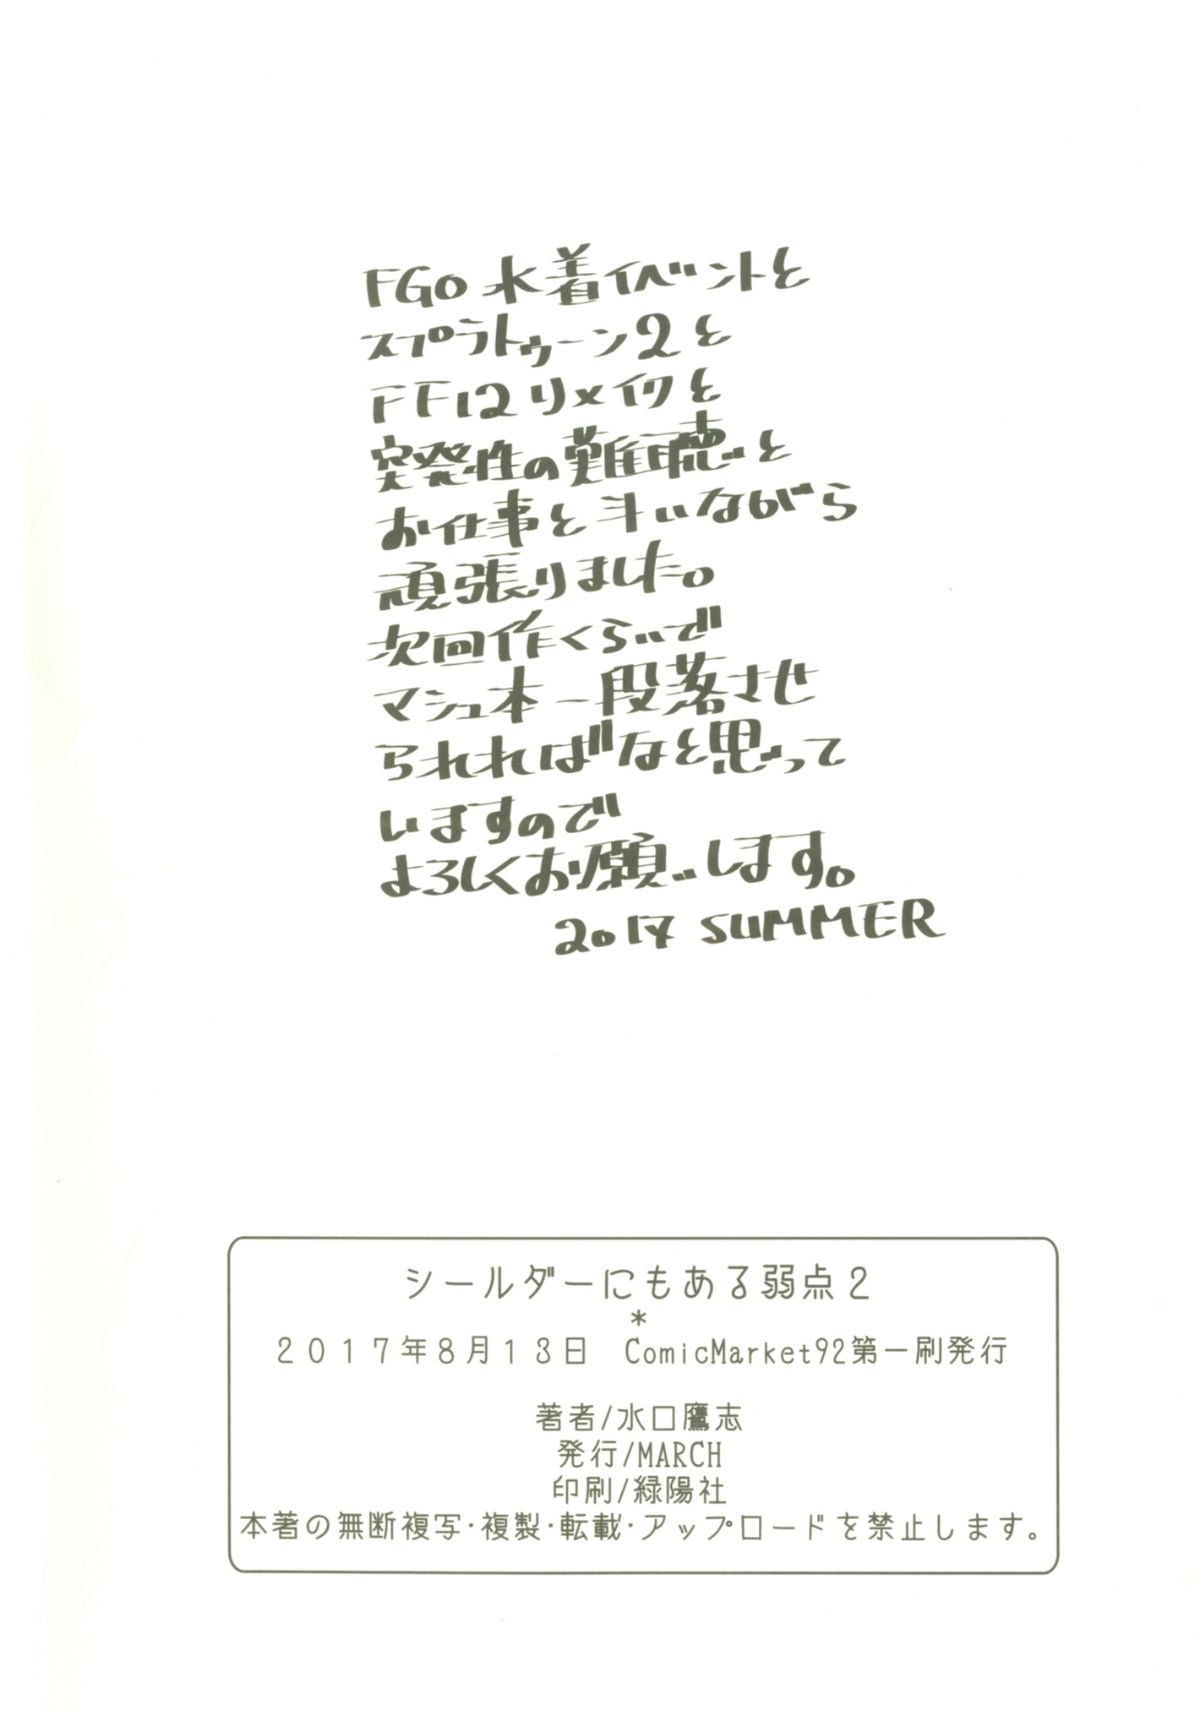 FGO水着イベントと
スプラトゥーン2と
FF12リメイクと
突発性の難聴と
お仕事と斗いながら
頑張りました。
次回作くらいで
マシュ本一段落させ
られればなと思って
いますので
よろしくお願いします。
2017 SUMMER
シールダーにもある弱点2
*
２０１７年８月１３日　ComicMarket92第一刷発行
著者/水口鷹志
発行/MARCH
印刷/緑陽社
本著の無断複写・複製・転載・アップロードを禁止します。